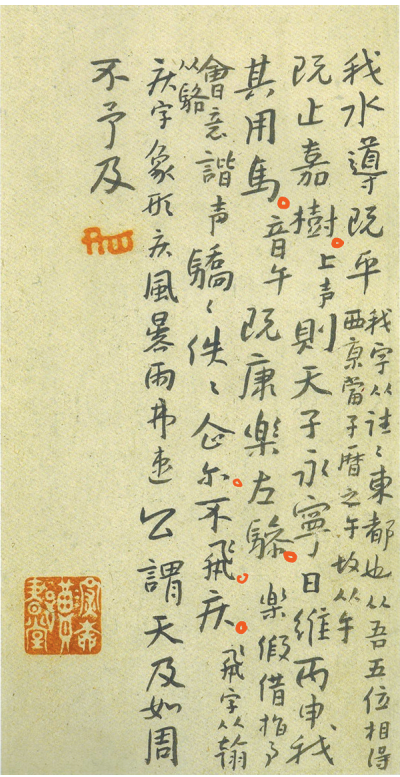 我水導既平
我字从往〻東都也从吾五位相得
西京當子曆之午故从午
既止嘉樹上声則天子永寧日維丙申我
其用馬音午既康樂左驂樂假借指事
會意諧声从駱驕〻佚〻企尔不飛庆飛字从翰
庆字象形庆風暴雨弗速公謂天及如周
不予及